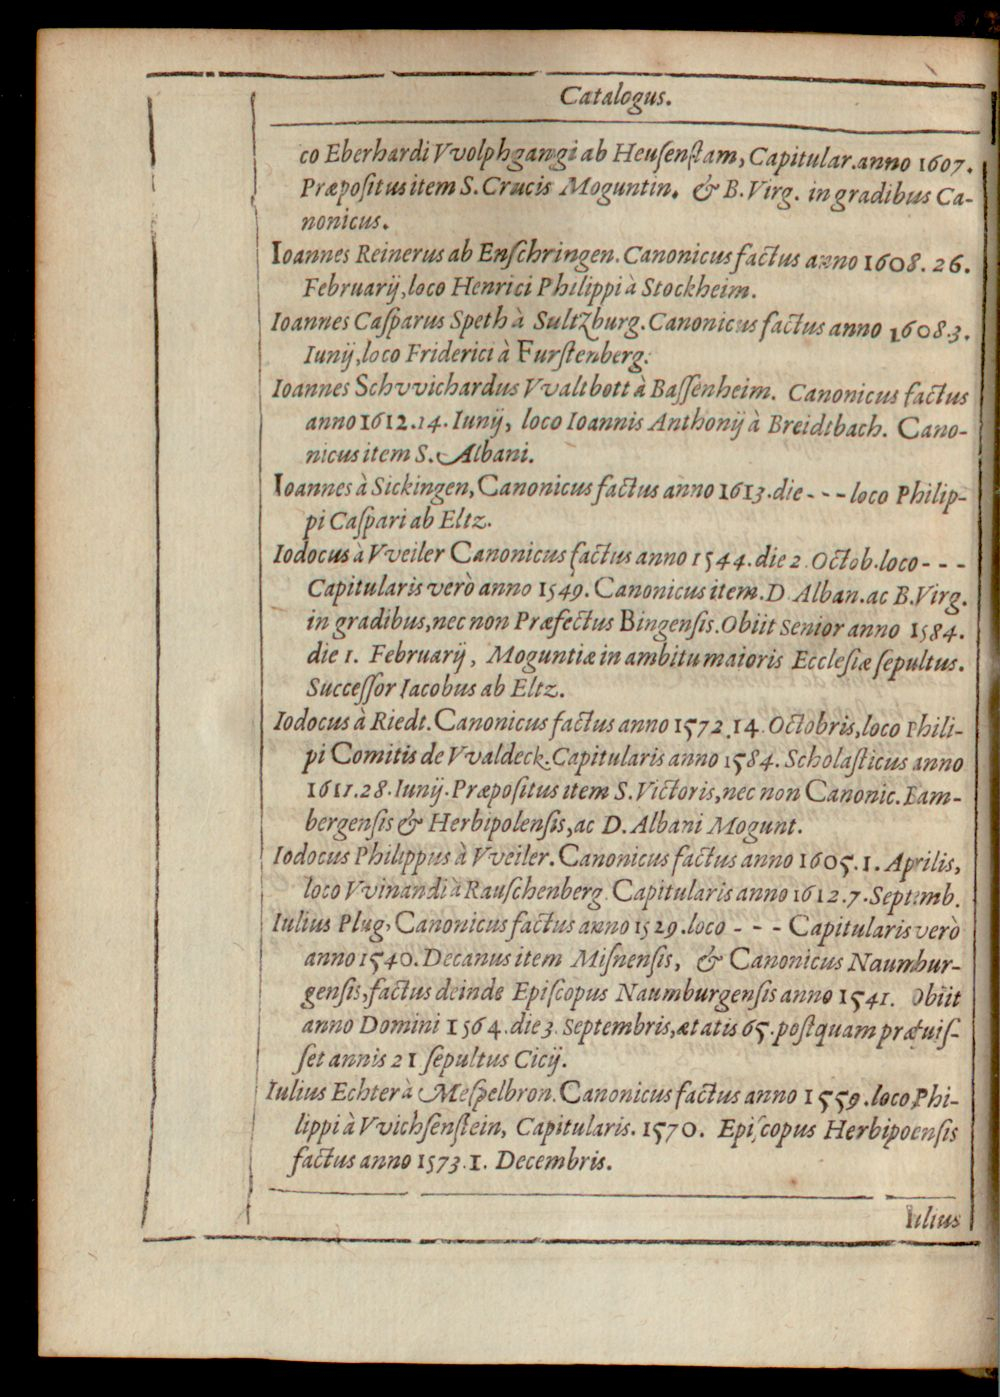 Catalogus.
co Eberhardi Vvolphgangi ab Heuſenſtam, Capitular. anno 1607.
Præpoſitus item S. Crucis Moguntin. & B. Virg. in gradibus Ca-
nonicus.
Ioannes Reinerus ab Enſchringen. Canonicus factus anno 1608. 26.
Februarij, loco Henrici Philippi à Stockheim.
Ioannes Caſparus Speth à Sultzburg. Canonicus factus anno 1608 3.
Iunij, loco Friderici à Furſtenberg.
Ioannes Schvvichardus Vvaltbott à Baſſenheim. Canonicus factus
anno 1612. 14. Iunij, loco Ioannis Anthonij à Breidtbach. Cano-
nicus item S. Albani.
Ioannes à Sickingen, Canonicus factus anno 1613. die - - - loco Philip-
pi Caſpari ab Eltz.
Iodocus à Vveiler Canonicus factus anno 1544. die 2. Octob. loco - - -
Capitularis verò anno 1549. Canonicus item. D. Alban. ac B. Virg.
in gradibus, nec non Præfectus Bingenſis. Obiit Senior anno 1584.
die 1. Februarij, Moguntiæ in ambitu maioris Eccleſiæ ſepultus.
Succeſſor Iacobus ab Eltz.
Iodocus à Riedt. Canonicus factus anno 1572. 14. Octobris, loco Phili-
pi Comitis de Vvaldeck. Capitularis anno 1584. Scholaſticus anno
1611. 28. Iunij. Præpoſitus item S. Victoris, nec non Canonic. Bam-
bergenſis & Herbipolenſis, ac D. Albani Mogunt.
Iodocus Philippus à Vveiler. Canonicus factus anno 1605. 1. Aprilis,
loco Vvinandi à Rauſchenberg. Capitularis anno 1612. 7. Septemb.
Iulius Plug, Canonicus factus anno 1529. loco - - - Capitularis verò
anno 1540. Decanus item Miſnenſis, & Canonicus Naumbur-
genſis, factus deinde Epiſcopus Naumburgenſis anno 1541. Obiit
anno Domini 1564. die 3. Septembris, ætatis 65. poſtquam præfuiſ-
ſet annis 21 ſepultus Cicij.
Iulius Echter à Meſpelbron. Canonicus factus anno 1559. loco Phi-
lippi à Vvichſenſtein, Capitularis. 1570. Epiſcopus Herbipoenſis
factus anno 1573. 1. Decembris.
Iulius